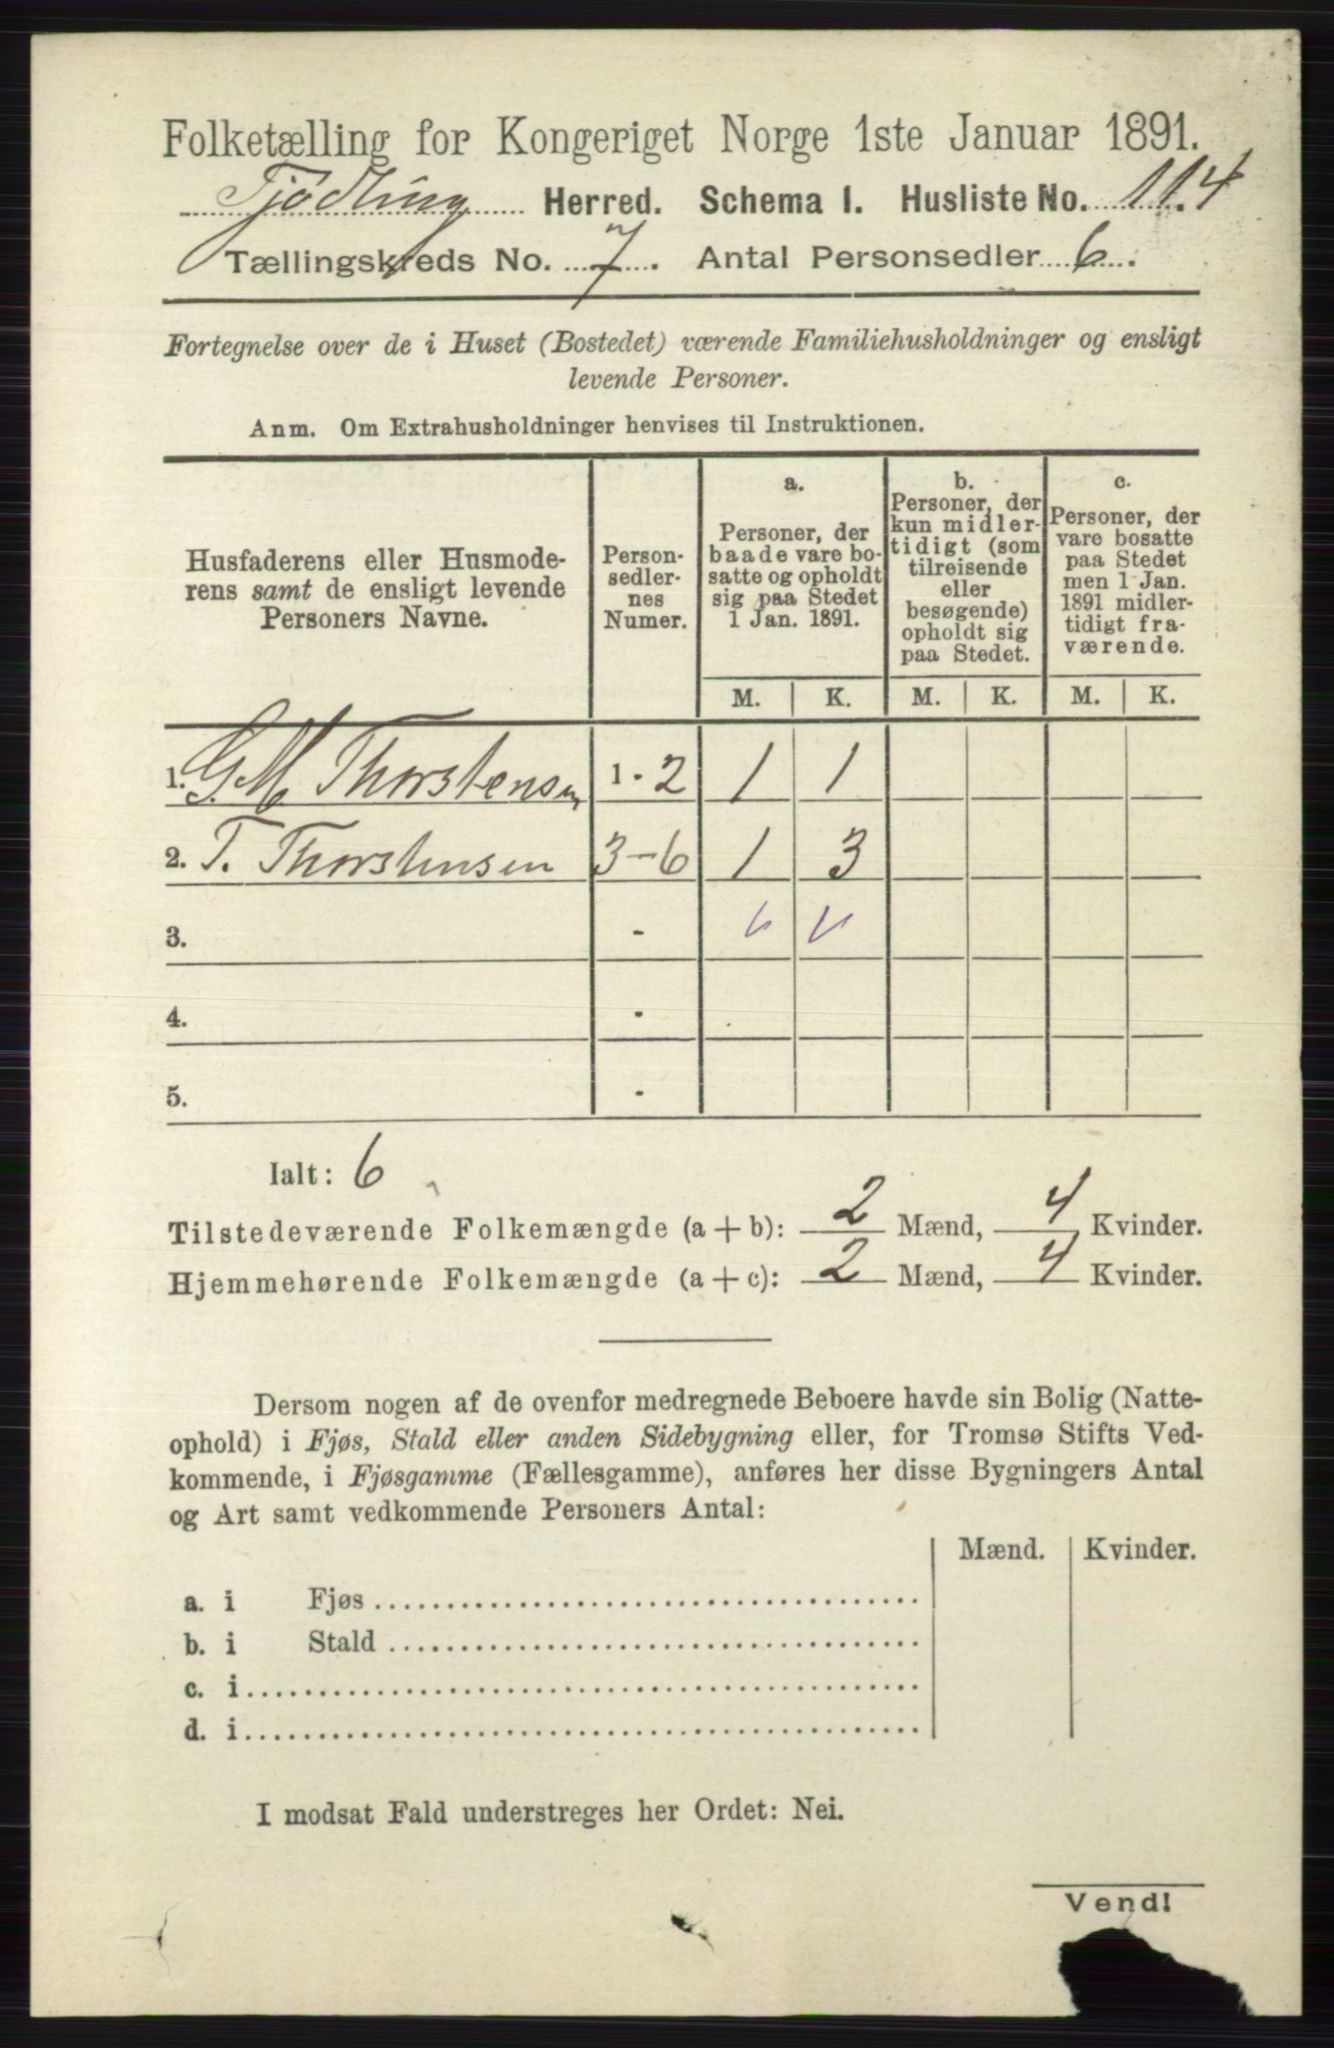 Folketælling for Kongeriget Norge 1ste Januar 1891.
Tjødling Herred. Schema I. Husliste No. 114
Tællingskreds No. 7. Antal Personsedler 6.
Fortegnelse over de i Huset (Bostedet) værende Familiehusholdninger og ensligt
levende Personer.
Anm. Om Extrahusholdninger henvises til Instruktionen.
Husfaderens eller Husmode-
rens samt de ensligt levende
Personers Navne.
Person-
sedler-
nes
Numer.
a.
Personer, der
baade vare bo-
satte og opholdt
sig paa Stedet
1 Jan. 1891.
b.
Personer, der
kun midler-
tidigt (som
tilreisende
eller
besøgende)
opholdt sig
paa Stedet.
c.
Personer, der
vare bosatte
paa Stedet
men 1 Jan.
1891 midler-
tidigt fra-
værende.
M. K. M. K. M. K.
1. G. M Thorstensen 1 - 2 1 1
2. T. Thorstensen 3-6 1 3
3. -
4. -
5. -
Ialt: 6
Tilstedeværende Folkemængde (a + b): 2 Mænd, 4 Kvinder.
Hjemmehørende Folkemængde (a + c): 2 Mænd, 4 Kvinder.
Dersom nogen af de ovenfor medregnede Beboere havde sin Bolig (Natte-
ophold) i Fjøs, Stald eller anden Sidebygning eller, for Tromsø Stifts Ved-
kommende, i Fjøsgamme (Fællesgamme), anføres her disse Bygningers Antal
og Art samt vedkommende Personers Antal:
Mænd. Kvinder.
a. i Fjøs
b. i Stald
c. i
d. i
I modsat Fald understreges her Ordet: Nei.
Vend!